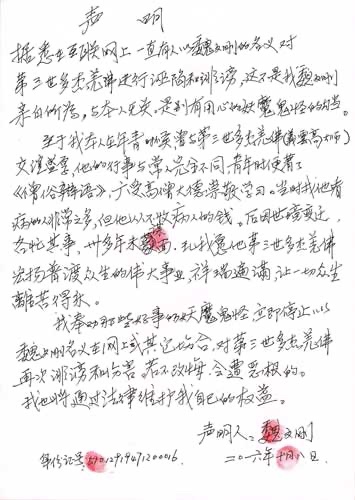 声 明
据悉在互联网上一直有人以魏文刚的名义对
第三世多杰羌佛进行诬陷和诽谤,这不是我魏文刚
亲自所为,与本人无关,是别有用心的妖魔鬼怪的勾当。
至于我本人在年青时确实曾与第三世多杰羌佛(义云高大师)
交谊甚笃,他的行事与常人完全不同,青年时便著了
《僧俗辩语》,广受高僧大德崇敬学习。当时找他看
病的人非常之多,但他从不收病人的钱。后因世事变迁,
各忙其事,卅多年未载面,孔我意他第三世多杰羌佛
宏扬普渡众生的伟大事业,祥瑞遍满,让一切众生
离苦得乐。
我奉劝那些好事的妖魔鬼怪,立即停止以
魏文刚名义在网上或其它场合,对第三世多杰羌佛
再次诽谤和伤害。若不改悔,会遭恶报的。
我也将通过法律维护我自己的权益。
声明人:魏文刚
身份证号:51012919471200016
二〇一六年十月八日